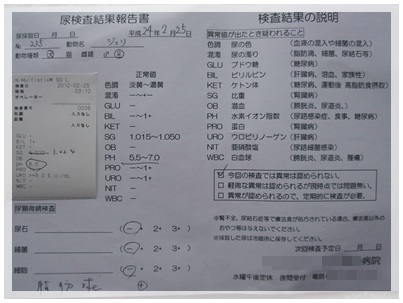 尿検査結果報告書
尿採取日 月 日
平成24年2月25日
No. 235 動物名 ジュリ
動物種類
正常値
色調 淡黄～濃黄
混濁 －～1+
GLU －
BIL －～1+
KET －
SG 1.015～1.050
OB －
PH 5.5～7.0
PRO －～1+
URO －～1+
NIT －
WBC －
2012-02-25
03:12
尿顕微鏡検査
尿石 － + 2+ 3+
細菌 － + 2+ 3+
細胞 － + 2+ 3+
脂肪球
検査結果の説明
異常値が出たとき疑われること
色調 尿の色 (血液の混入や細菌の混入)
混濁 尿の濁り (脂肪滴、細菌、尿結石等)
GLU ブドウ糖 (糖尿病)
BIL ビリルビン (肝臓病、溶血、家族性)
KET ケトン体 (糖尿病、運動後 高脂肪食摂取)
SG 比重 (腎臓病)
OB 潜血 (膀胱炎、尿道炎)
PH 水素イオン指数 (尿路感染症、食事、糖尿病)
PRO 蛋白 (腎臓病)
URO ウロビリノーゲン (肝臓病)
NIT 亜硝酸塩 (尿路細菌感染)
WBC 白血球 (膀胱炎、尿道炎、腫瘍)
今回の検査では異常は認められない。
軽微な異常は認められるが現時点では問題無い。
異常が認められるので、定期的に検査が必要。
次回検査予定日 月 日
病院
水曜午後定休 夜間受付 電話